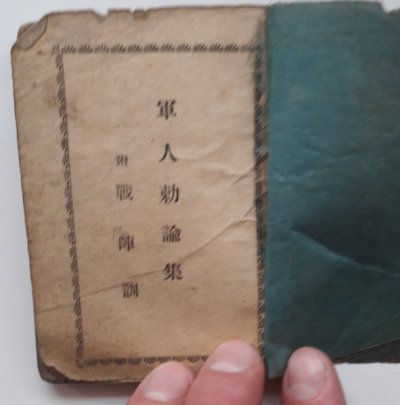 軍人勅諭集
附 戰陣訓